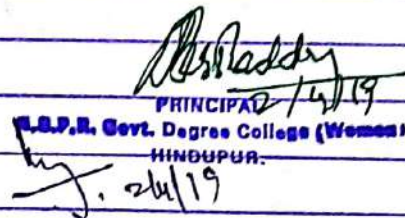 PRINCIPAL
2/4/19
Govt. Degree College (Women)
HINDUPUR.
2/4/19